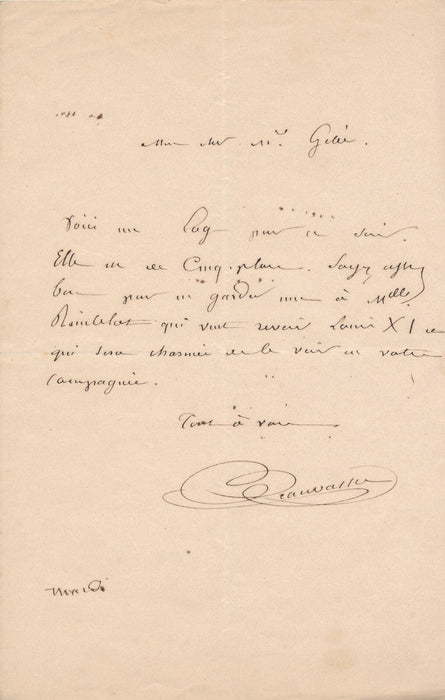 Mon cher Mr. Gilé.
Voici une Loge pour ce soir.
Elle est de Cinq places. Soyez assez
bon pour en garder une à Melle
qui veut revoir Louis XI et
qui sera charmée de le voir en votre
compagnie.
Tout à vous
Beauvallet
mardi